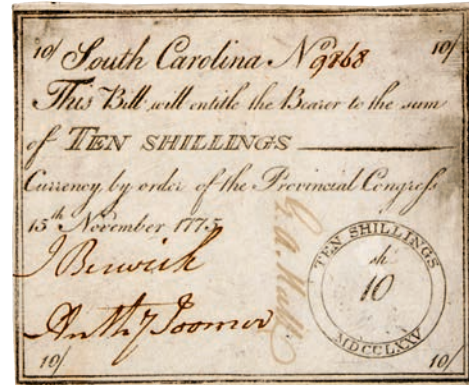 10/ South Carolina No 9868 10/
This Bill will entitle the Bearer to the sum
of TEN SHILLINGS
Currency, by order of the Provincial Congress
15th November 1775
J Berwick
Anth Toomer
G. A. Hall
TEN SHILLINGS
sh
10
MDCCLXXV
10/ 10/